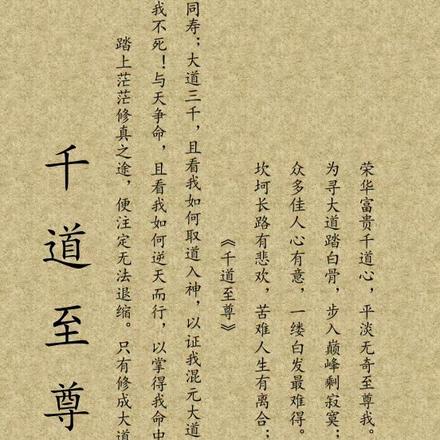 千道至尊
踏上茫茫修真之途，便注定无法退缩。只有修成大道
我不死！与天争命，且看我如何逆天而行，以掌得我命中
同寿；大道三千，且看我如何取道入神，以证我混元大道
《千道至尊》
坎坷长路有悲欢，苦难人生有离合；
众多佳人心有意，一缕白发最难得。
为寻大道踏白骨，步入巅峰剩寂寞；
荣华富贵千道心，平淡无奇至尊我。